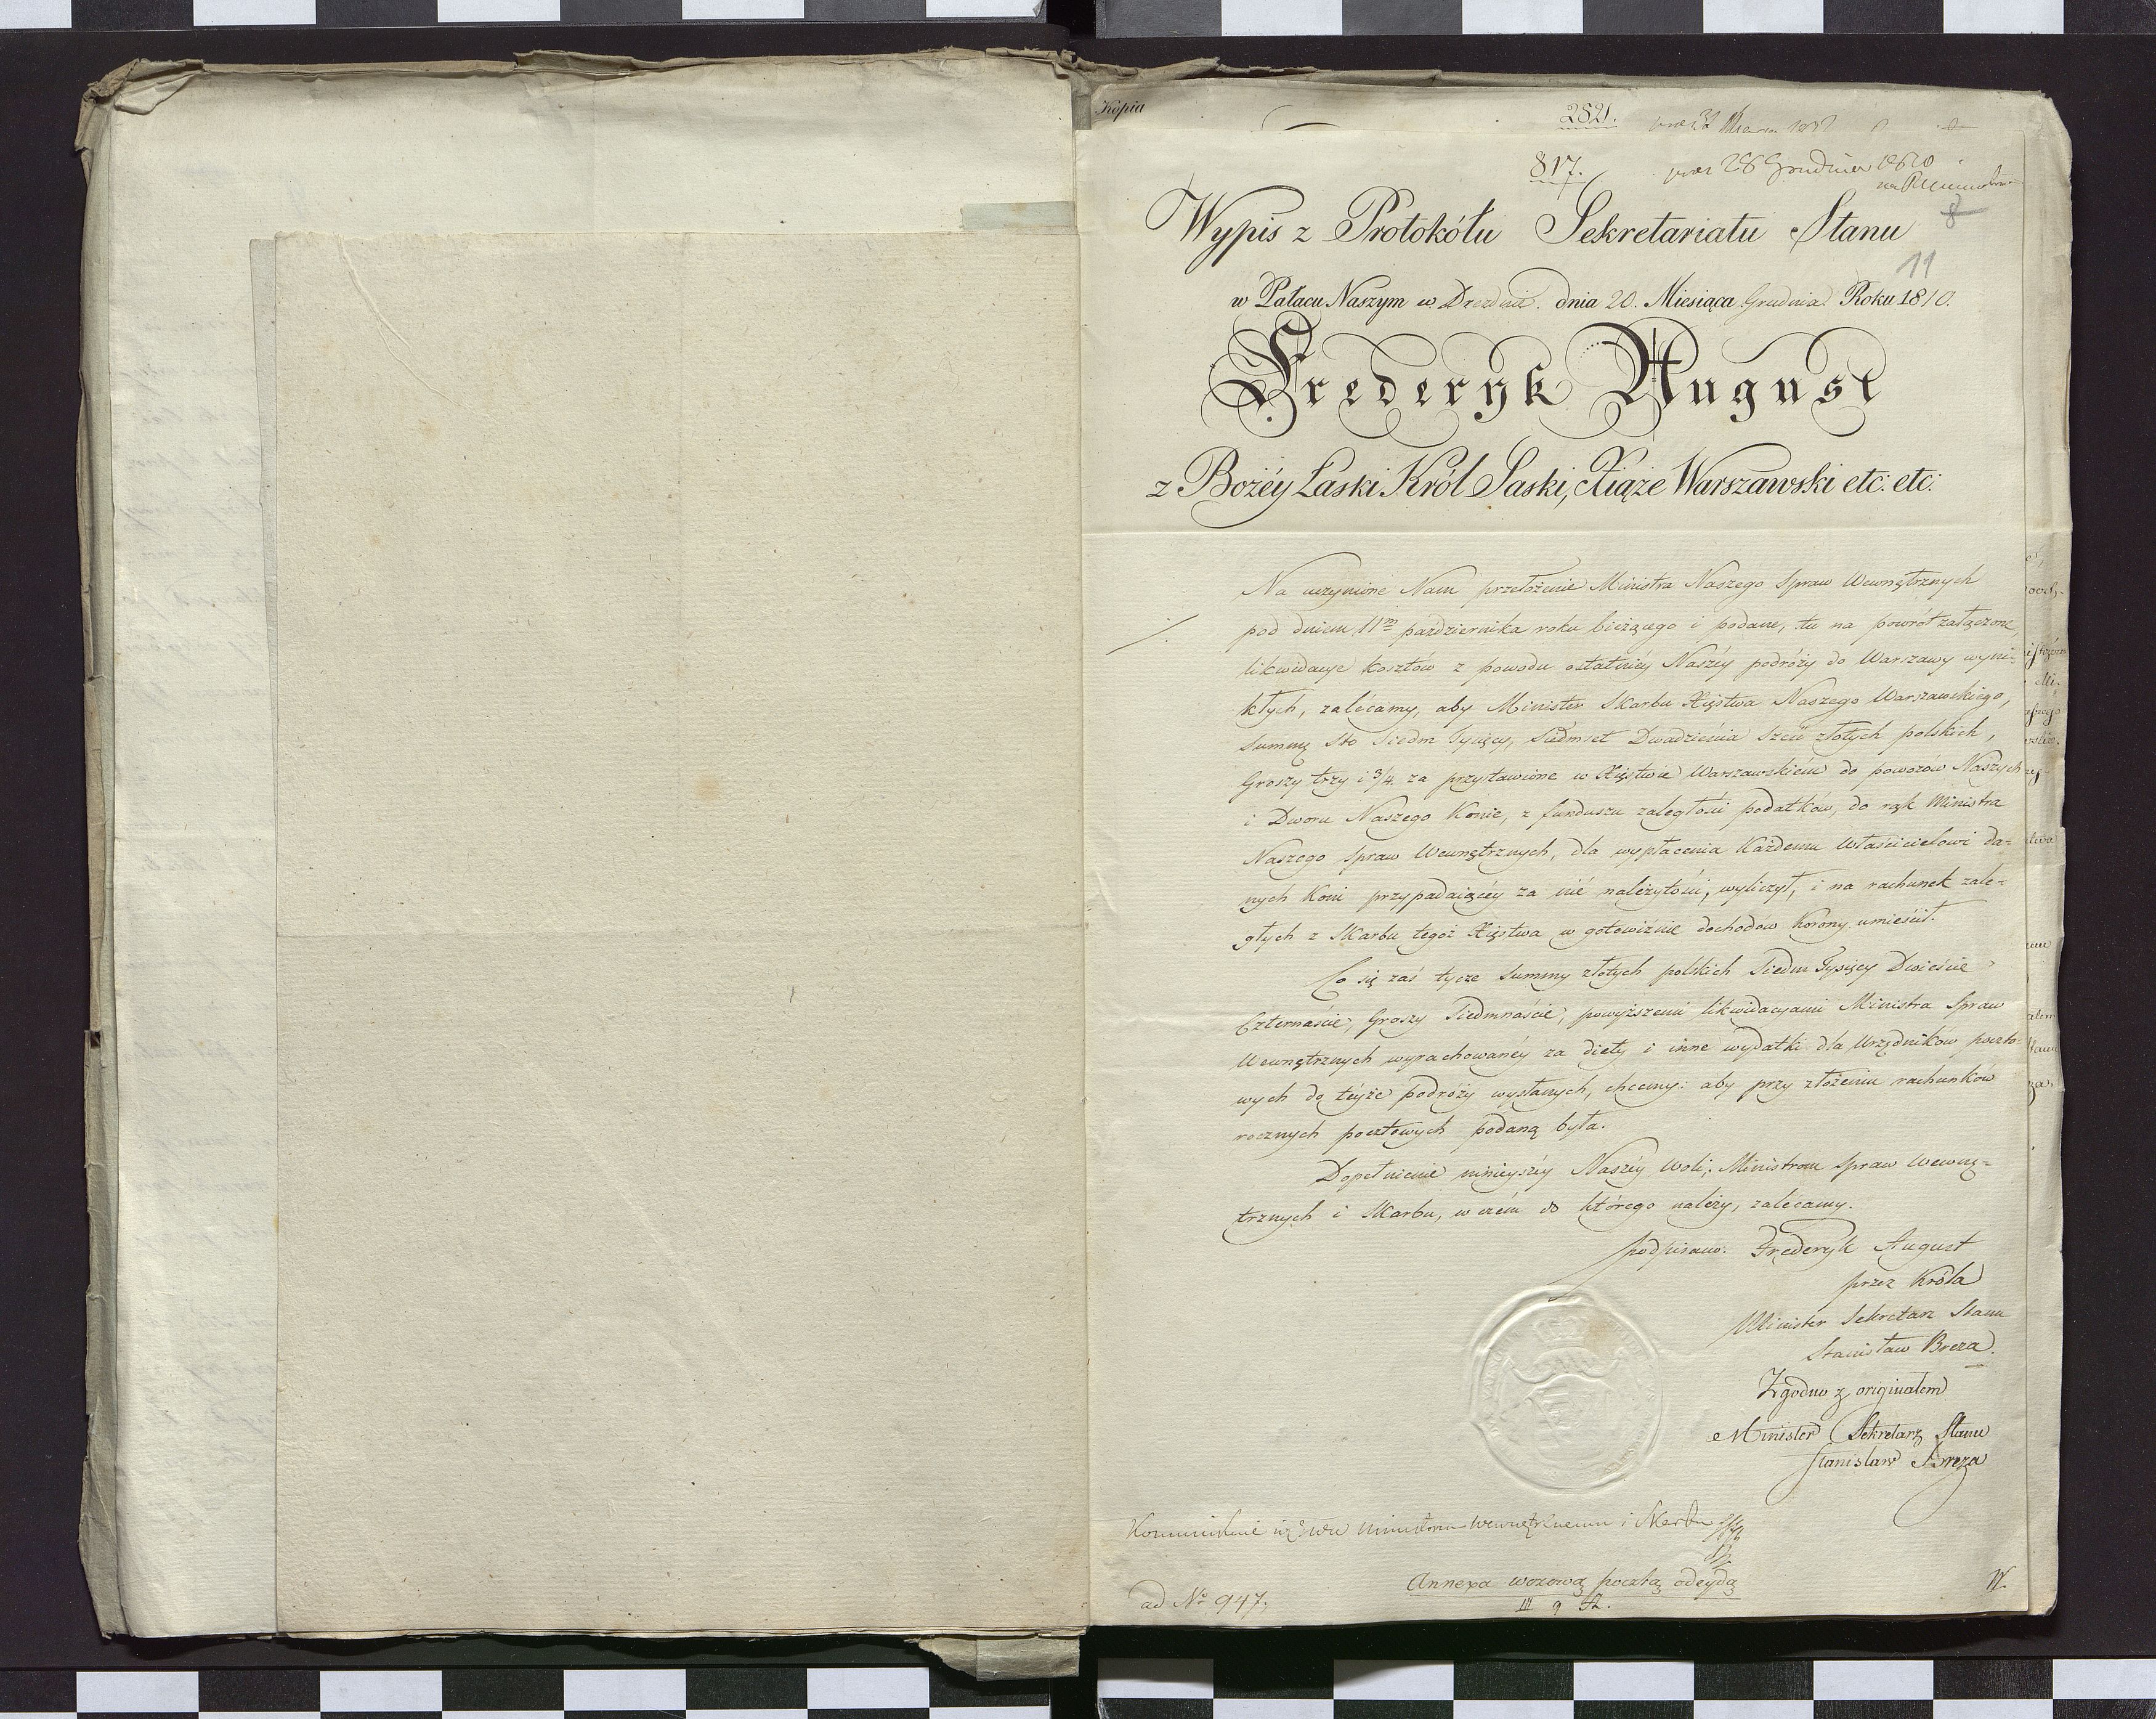 Kopia
2821.
817.
prae 28 Grudnia 1810
8
11
Wypis z Protokółu Sekretariatu Stanu
w Pałacu Naszym w Dreznie. dnia 20. Miesiąca Grudnia Roku 1810.
Frederyk August
z Bożéy Łaski Król Saski, Xiąże Warszawski etc: etc:
Na uczynione Nam przełożenie Ministra Naszego Spraw Wewnętrznych
pod dniem 11m października roku bieżącego i podane, tu na powrót załączone,
likwidacye kosztów z powodu ostatniéy Naszéy podróży do Warszawy wyni-
kłych, zalécamy, aby Minister Skarbu Xięstwa Naszego Warszawskiego,
Summę Sto Siedm Tysięcy, Siedmset Dwadzieścia Sześć złotych polskich,
Groszy trzy i 3/4. za przystawione w Xięstwie Warszawskiém do powozów Naszych
i Dworu Naszego Konie, z funduszu zaległości podatków, do rąk Ministra
Naszego Spraw Wewnętrznych, dla wypłacenia Każdemu Właścicielowi da=
nych Koni przypadaiącéy za nié należytości, wyliczył, i na rachunek zale=
głych z Skarbu tegoż Xięstwa w gotowiźnie dochodów Korony umieścił.
Co się zaś tycze Summy złotych polskich Siedm Tysięcy Dwieście
Czternaście, Groszy Siedmnaście, powyższemi likwidacyami Ministra Spraw
Wewnętrznych wyrachowanéy za diety i inne wydatki dla Urzędników poczto-
wych do téyże podróży wysłanych, chcemy: aby przy złożeniu rachunków
rocznych pocztowych podaną była.
Dopełnienie ninieyszéy Naszéy Woli, Ministrom Spraw Wewnę=
trznych i Skarbu, w czém do którego należy, zalécamy.
podpisano. Fréderyk August
przez Króla
Minister Sekretarz Stanu
Stanisław Breza.
Zgodno z originałem
Minister Sekretarz Stanu
Stanisław Breza
Annexa wozową pocztą odeydą
III 9 A.
ad No. 947.